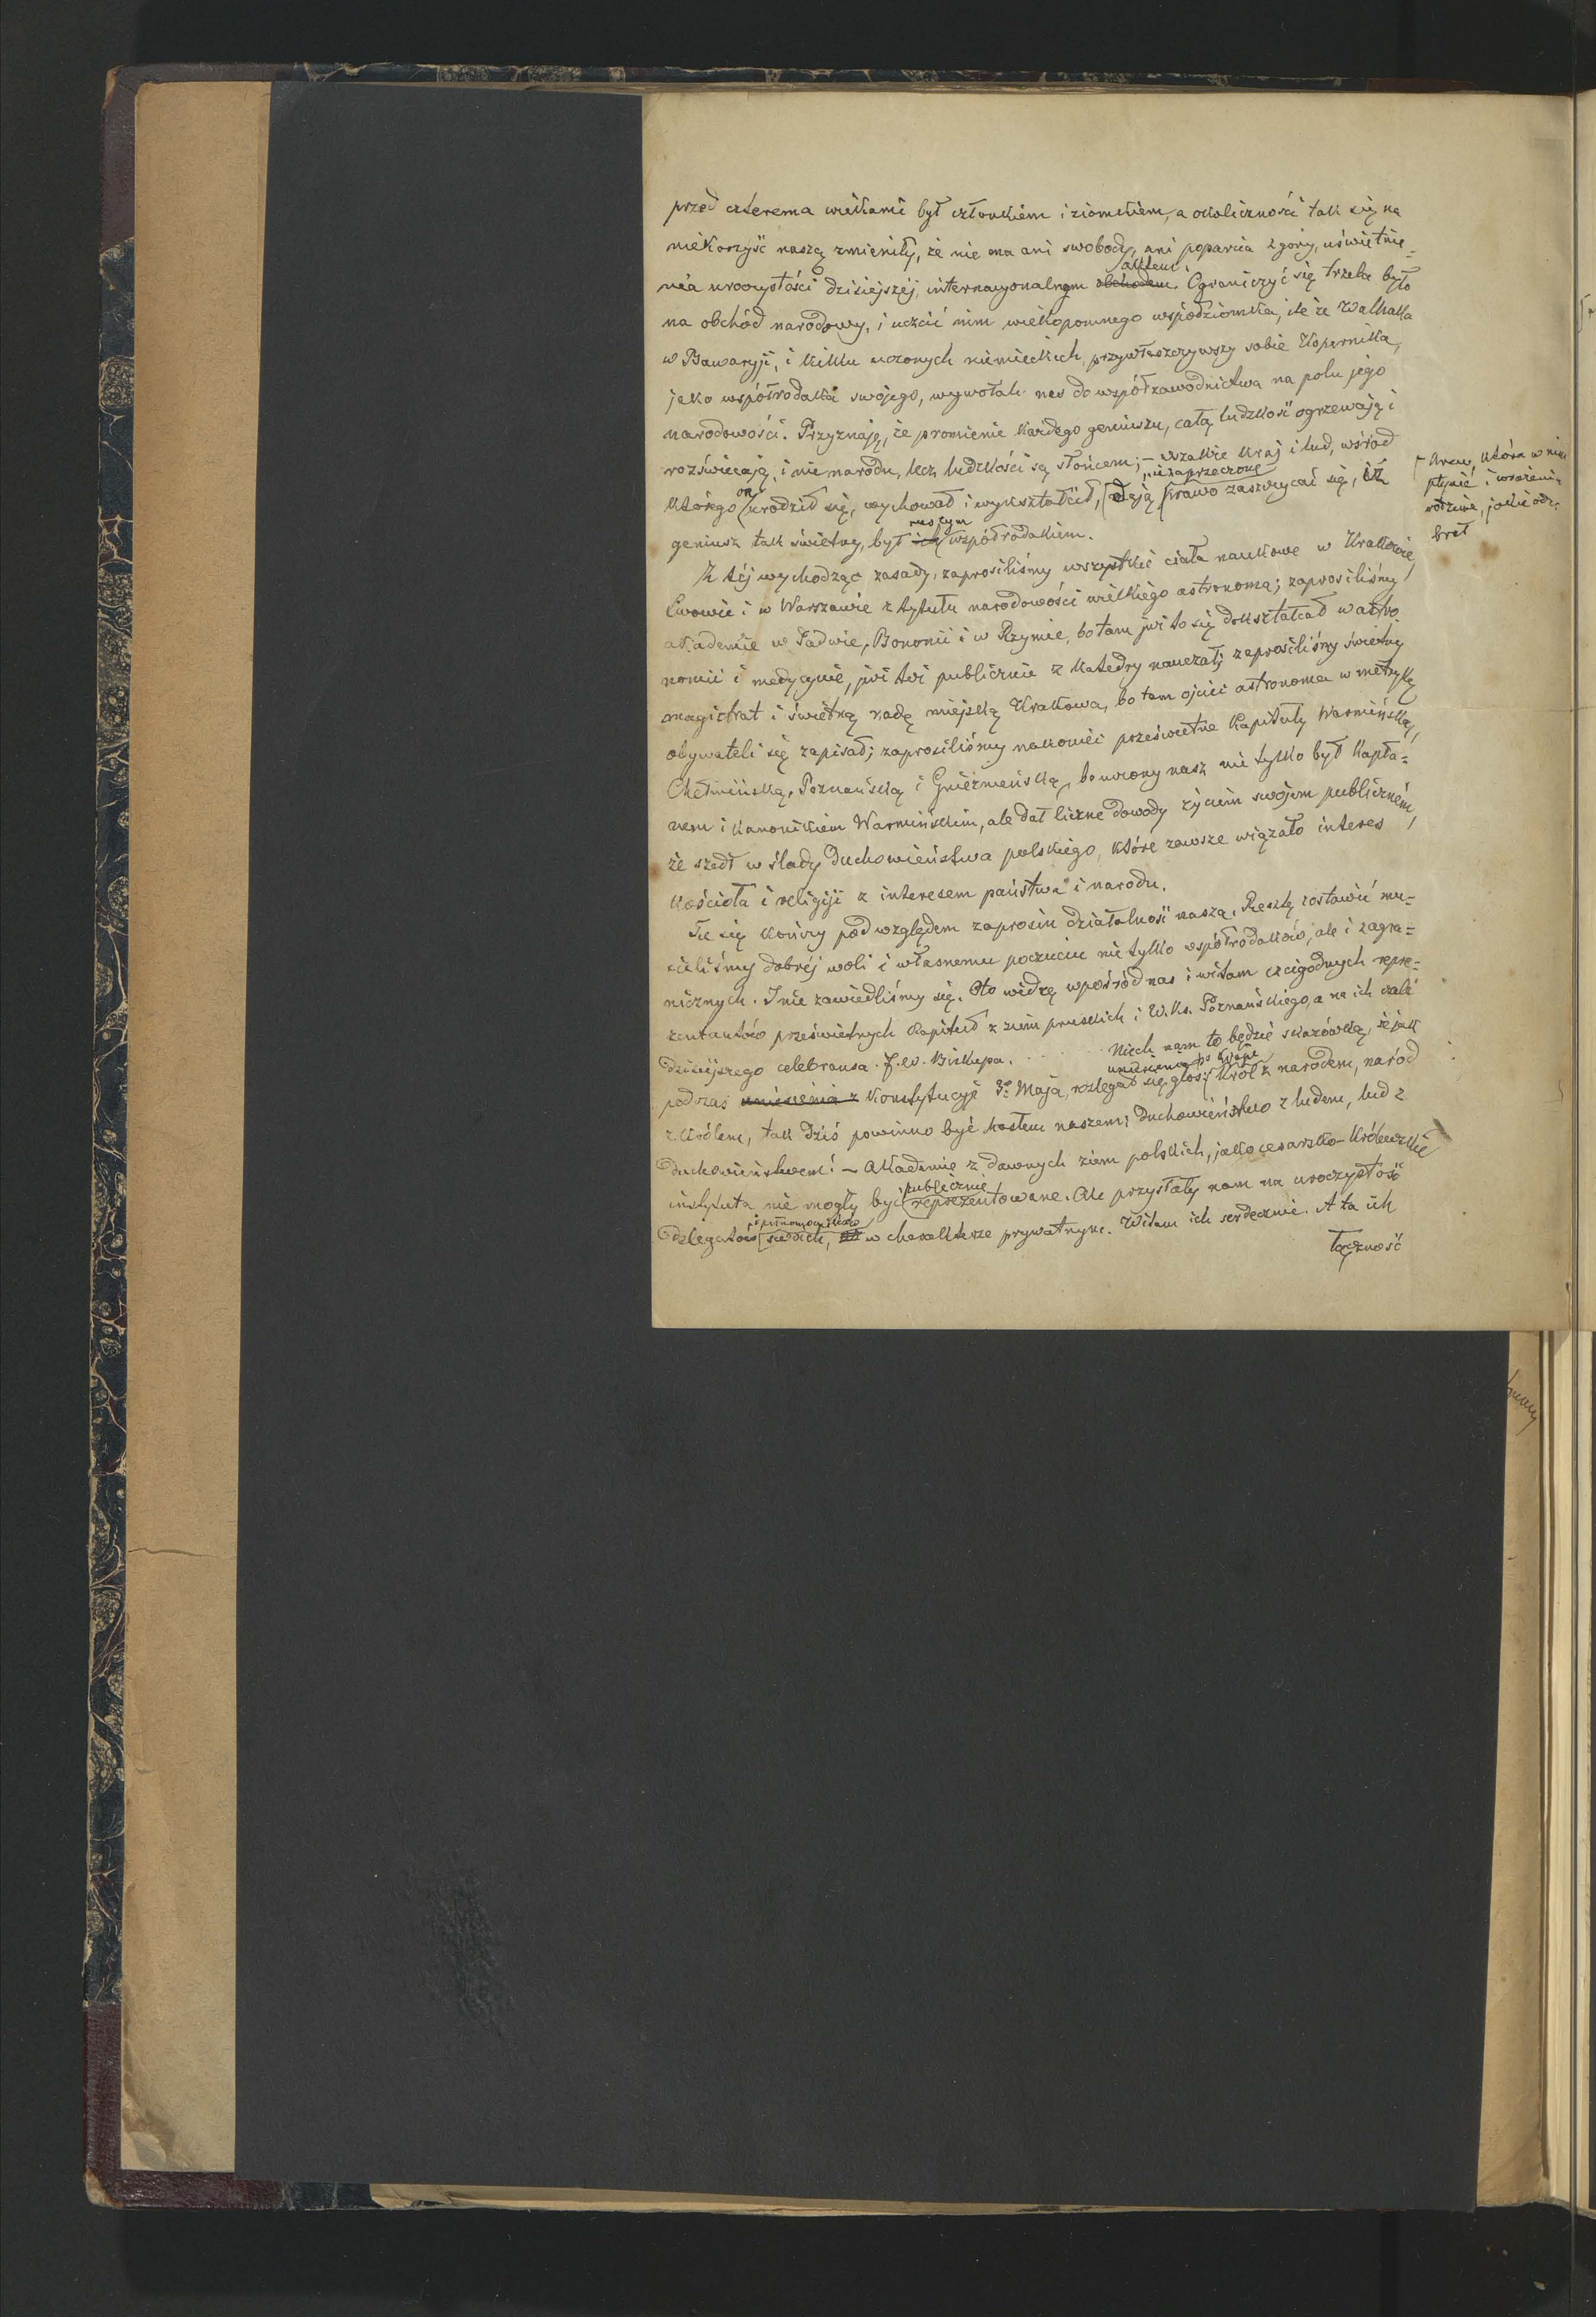 przed czterema wiekami był członkiem i ziomkiem, a okoliczności tak się na
niekorzyść naszą zmieniły, że nie ma ani swobody, ani poparcia z góry, uświetnie=
nia uroczystości dzisiejszéj, internacyonalnym obchodem aktem. Ograniczyć się trzeba było
na obchód narodowy, i uczcić nim wiekopomnego współziomka, ile że Walhalla
w Bawaryji, i kilku uczonych niemieckich, przywłaszczywszy sobie Kopernika,
jako współrodaka swojego, wywołali nas do współzawodnictwa na polu jego
narodowości. Przyznają, że promienie każdego geniuszu, całą ludzkość ogrzewają i
rozświecają, i nie narodu, lecz ludzkości są słońcem; – wszakże kraj i lud, wśród
którego on urodził się, wychował i wykształcił, dają niezaprzeczone prawo zaszczycać się, iż
geniusz tak świetny, był ich naszym współrodakiem.
krew, która w nim
płynie i wrażenia
rodzinne, jakie ode-
brał
Z téj wychodząc zasady, zaprosiliśmy wszystkie ciała naukowe w Krakowie,
Lwowie i w Warszawie z tytułu narodowości wielkiego astronoma; zaprosiliśmy
akademie w Padwie, Bononii i w Rzymie, bo tam już to się dokształcał w astro
nomii i medycynie, już też publicznie z katedry nauczał; zaprosiliśmy świetny
magistrat i świetną radę miejską Krakowa, bo tam ojciec astronoma w metrykę
obywateli się zapisał; zaprosiliśmy nakoniec prześwietne Kapituły Warmińską,
Chełmińską, Poznańską i Gnieźnieńską, bo uczony nasz nie tylko był kapła=
nem i kanonikiem Warmińskim, ale dał liczne dowody życiem swojem publiczném,
że szedł w ślady duchowieństwa polskiego, które zawsze wiązało interes
kościoła i religiji z interesem państwa i narodu.
Tu się kończy pod względem zaprosin działalność nasza. Resztę zostawić mu=
sieliśmy dobréj woli i własnemu poczuciu nie tylko współrodaków, ale i zagra=
nicznych. I nie zawiedliśmy się. Oto widzę wpośród nas i witam czcigodnych repre=
zentantów prześwietnych Kapituł z ziem pruskich i W. Ks. Poznańskiego, a na ich czele
dzisiejszego celebransa J. W. Biskupa. . . . . . Niech nam to będzie skazówką, że jak
podczas uniesienia z Konstytucyi 3go Maja, rozlegał się uniesienia po kraju głos: Król z narodem, naród
z królem, tak dziś powinno być hasłem naszem: duchowieństwo z ludem, lud z
duchowieństwem! – Akademie z dawnych ziem polskich, jako cesarsko-królewskie
instytuta nie mogły być publicznie reprezentowane. Ale przysłały nam na uroczystość
delegatów i pełnomocników swoich, w charakterze prywatnym. Witam ich serdecznie. A ta ich
łączność